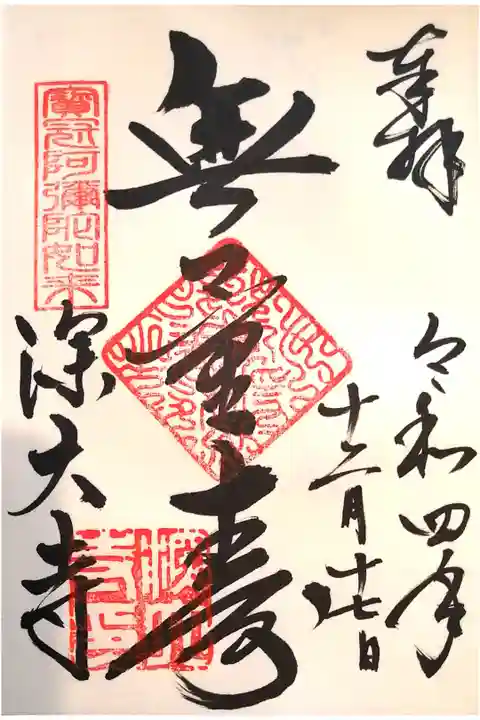 奉拝
令和四年
十二月十七日
無量壽
寶冠阿彌陀如来
深大寺